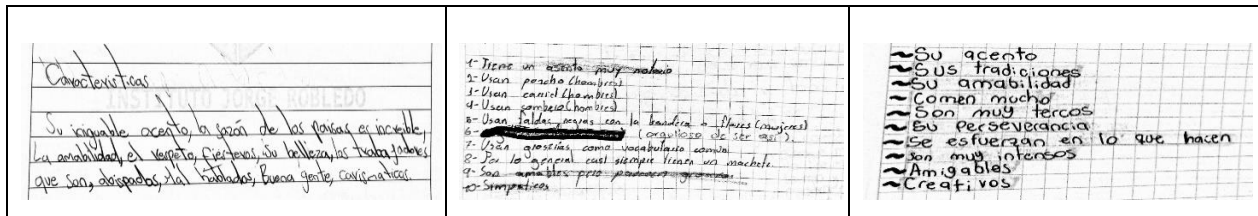 Características
INSTITUTO JORGE ROBLEDO
Su iniguable acento, la sazón de los paisas es increible,
La amabilidad, el respeto, fiesteros, su belleza, los trabajadores
que son, abispados, mal hablados, Buena gente, carismaticos.
1- Tiene un asento muy notorio
2- Usan poncho (hombres)
3- Usan carriel (hombres)
4- Usan sombero (hombres)
5- Usan faldas negras con la bandera o flores (mujeres)
6- (orgulloso de ser así).
7- Usan groserías como vocabulario común
8- Por lo general casi siempre tienen un machete.
9- Son amables pero
10- Simpaticos
~Su acento
~Sus tradiciones
~Su amabilidad
~Comen mucho
~Son muy tercos
~Su perseverancia
~Se esfuerzan en lo que hacen
~Son muy intensos
~Amigables
~Creativos